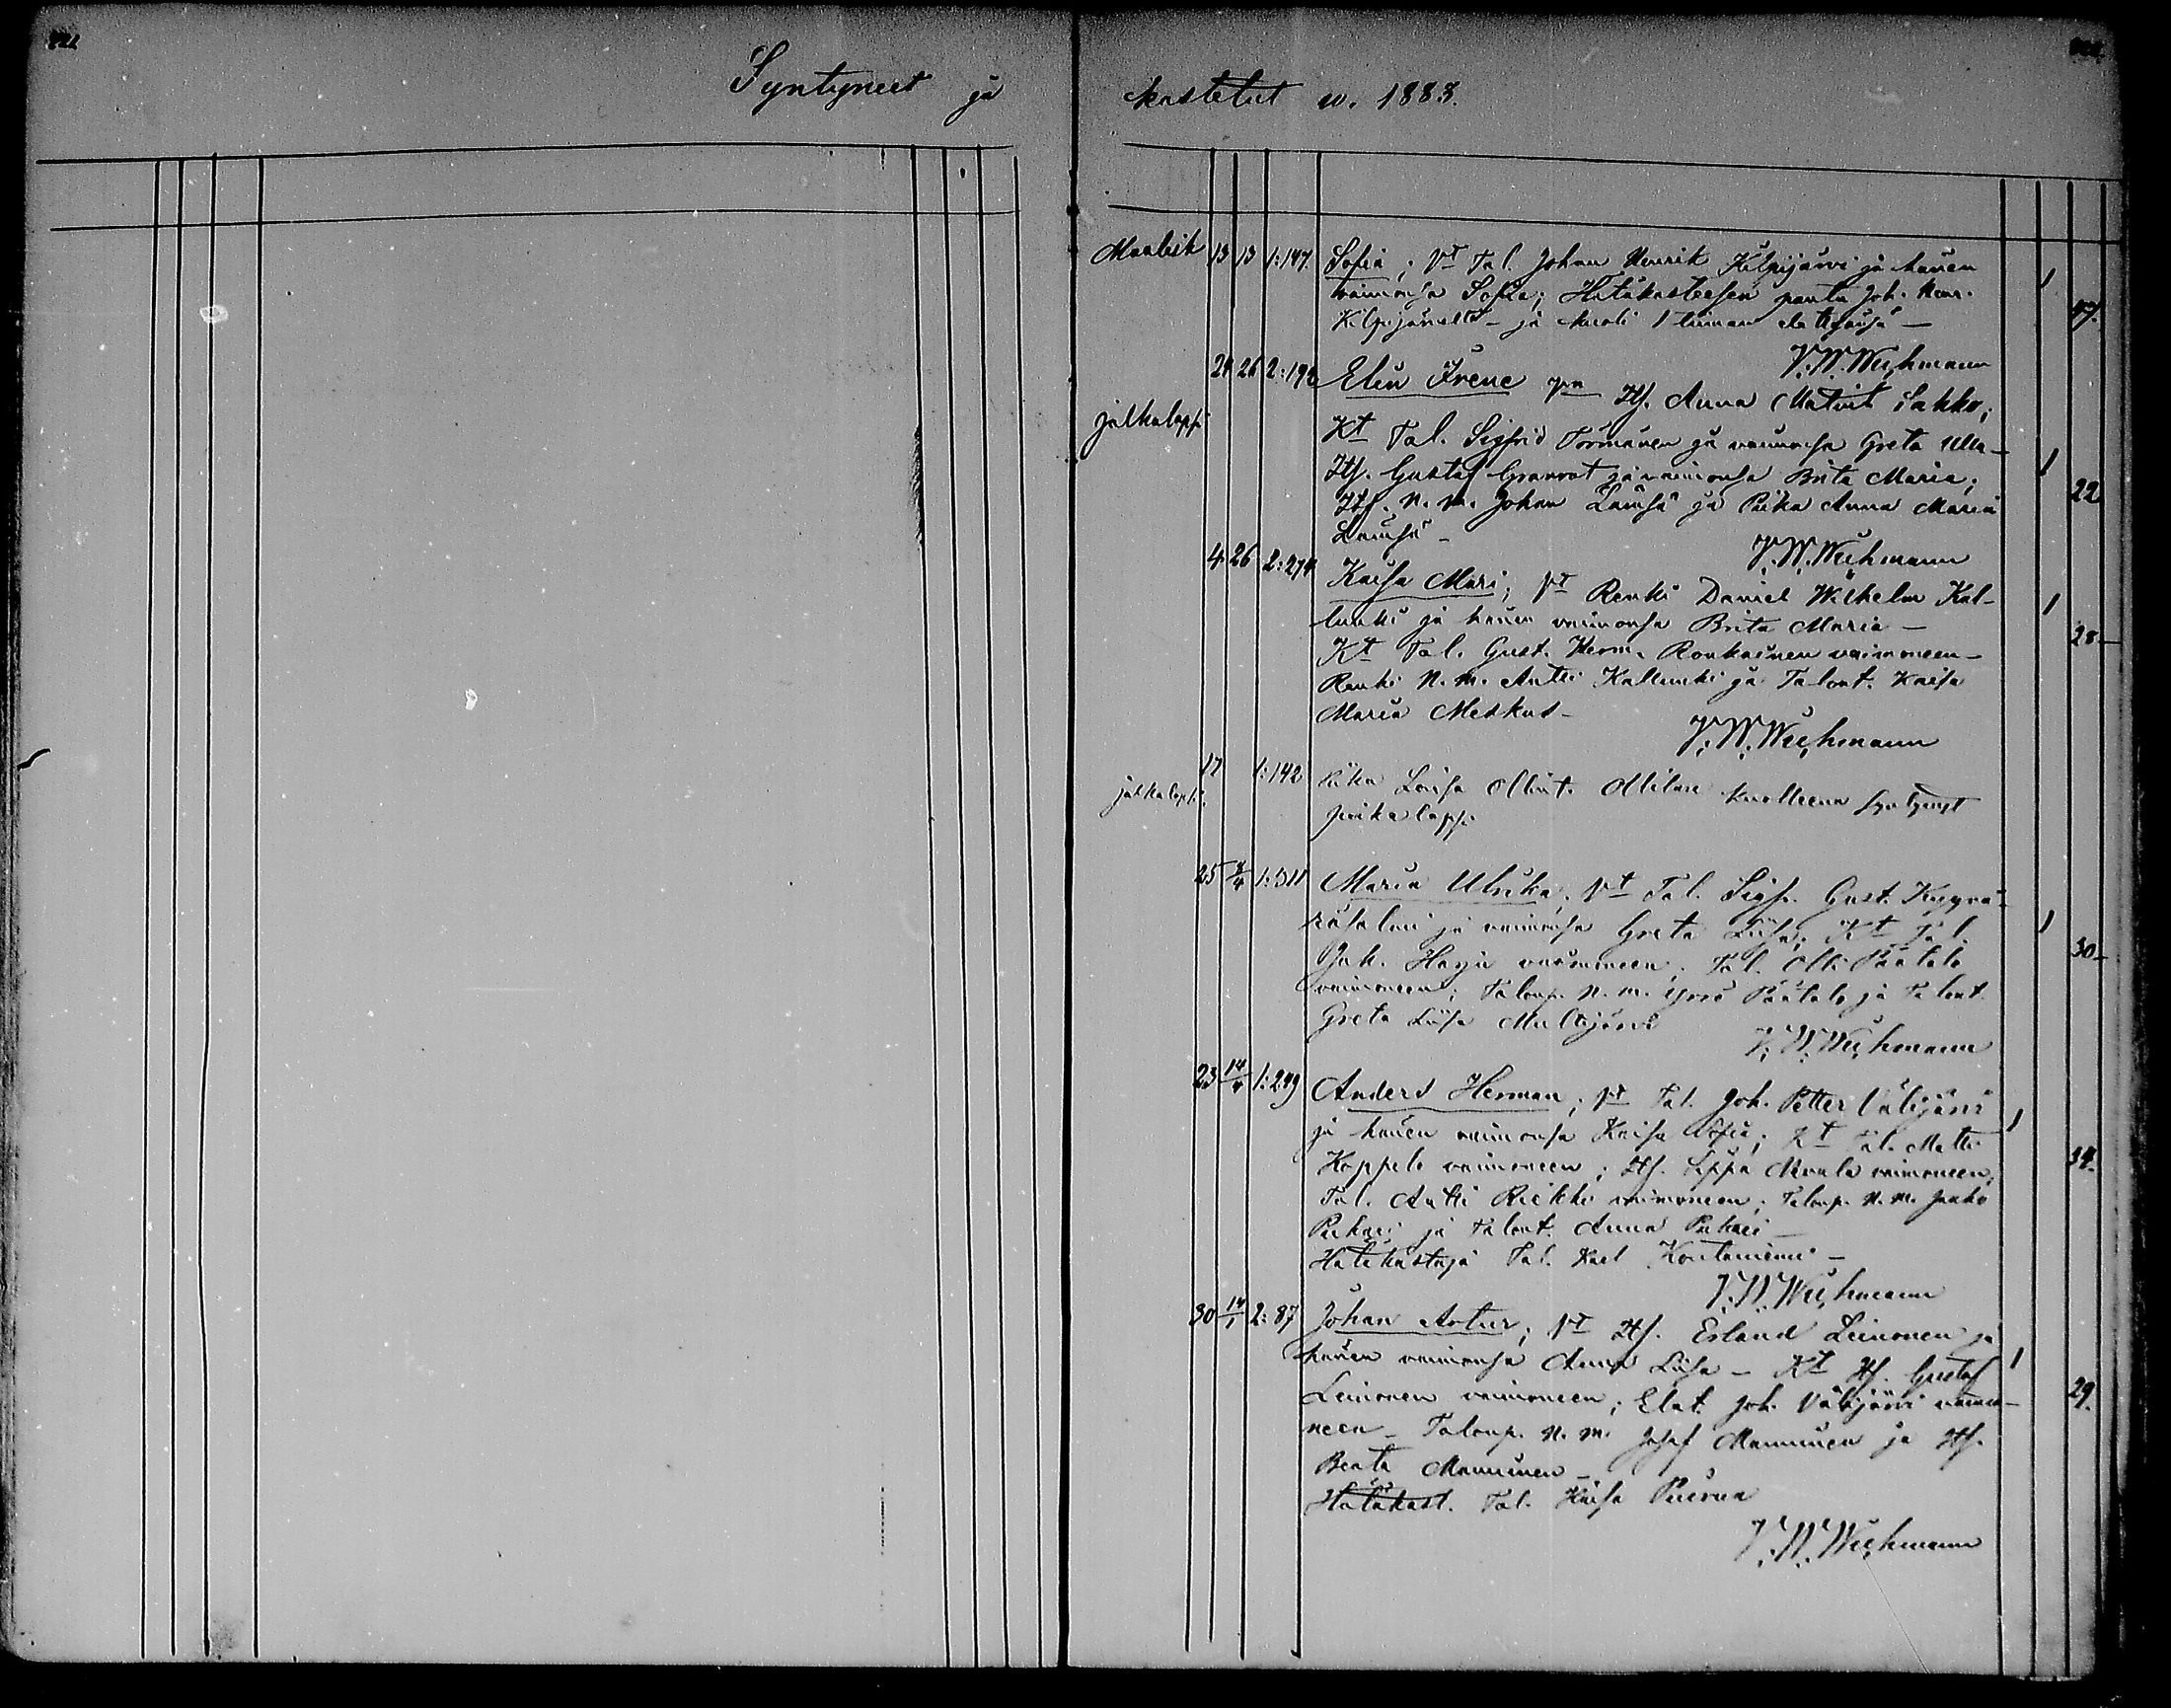 Syntyneet ja kastetut w. 1883.
Maalisk 13 13 1:147. Sofia; Vt Tal. Johan Henrik Kilpijärvi ja hänen 1
vaimonsa Sofia; Hätäkasteesen pantu Joh. Henr. 47.
Kilpijärveltä - ja kuoli 1 tiiman elettyänsä -
V. W. Wichmann
24 26 2:192 Elin Irene Its. Anna Matint. Sakko;
jalkalapsi
Kt Tal. Sigfrid Törmänen ja vaimonsa Greta Ulla - 1
Its. Gustaf Granrot ja vaimonsa Brita Maria; 22
Its. N. m. Johan Lämsä ja Piika Anna Maria
Lämsä -
V. W. Wichmann
4 26 2:274 Kaisa Mari; Vt Renki Daniel Wilhelm Kal- 1
lunki ja hänen vaimonsa Brita Maria - 28
Kt Tal. Gust. Herm. Ronkainen vaimoneen -
Renki N. m. Antti Kallunki ja Talont. Kaisa
Maria Meskus -
V. W. Wichmann
17 1:142 Piika Loisa Ollint. Ollilan kuolleena syntynyt
jalkalapsi.
poikalapsi
25 8/4 1:311 Maria Ulrika; Vt Tal. Sigfr. Gust.
vaimonsa Greta Liisa; Kt Tal. 1
Joh. Harju vaimoneen; Tal. Olli Päätalo 30
vaimoneen; Talonp. N. m. Yrjö Päätalo ja Talont.
Greta Liisa Multijärvi
V. W. Wichmann
23 14/4 1:249 Anders Herman; Vt Tal. Joh. Petter Välijärvi
ja hänen vaimonsa Kaisa Sofia; Kt Tal. Matti 1
Koppelo vaimoneen; Its. vaimoneen; 34.
Tal. Antti Riekki vaimoneen; Talonp. N. m. Jaako
Pukari ja Talont. Anna Pukari -
Hätäkastaja Tal. Karl Kontioniemi -
V. W. Wichmann
30 14/1 2:87 Johan Artur; Vt Its. Erland Leinonen ja
hänen vaimonsa Anna Liisa - Kt Its. Gustaf 1
Leinonen vaimoneen; Elat. Joh. Välijärvi vaimo- 29.
neen - Talonp. N. m. Josef Manninen ja Its.
Beata Manninen -
Hätäkast. Tal. Kaisa
V. W. Wichmann